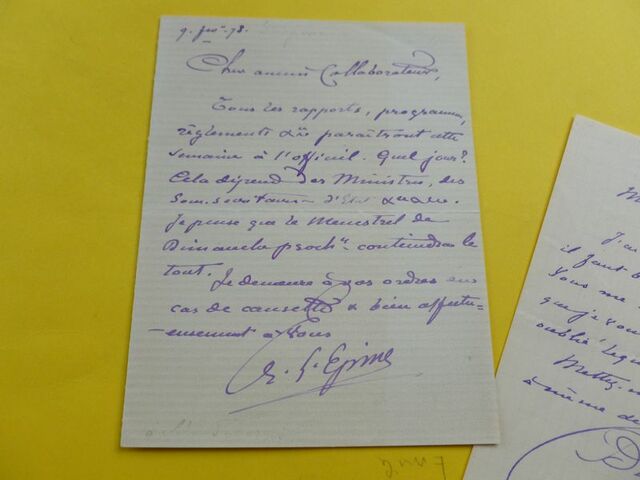 9. Jer. 78.
Chers amis & Collaborateurs,
Tous les rapports, programmes,
règlements &a paraîtront cette
semaine à l'officiel. Quel jour?
Cela dépend des Ministres, des
Sous-secrétaires d'Etat &a &a.
Je pense que le Menestrel de
Dimanche proch. contiendra le
tout.
Je demeure à vos ordres en
cas de causette & bien affectu-
-eusement à vous
E. L'Epine
M
J'ai
il faut
vous me
que je vous
oublié
Mettez
à même de